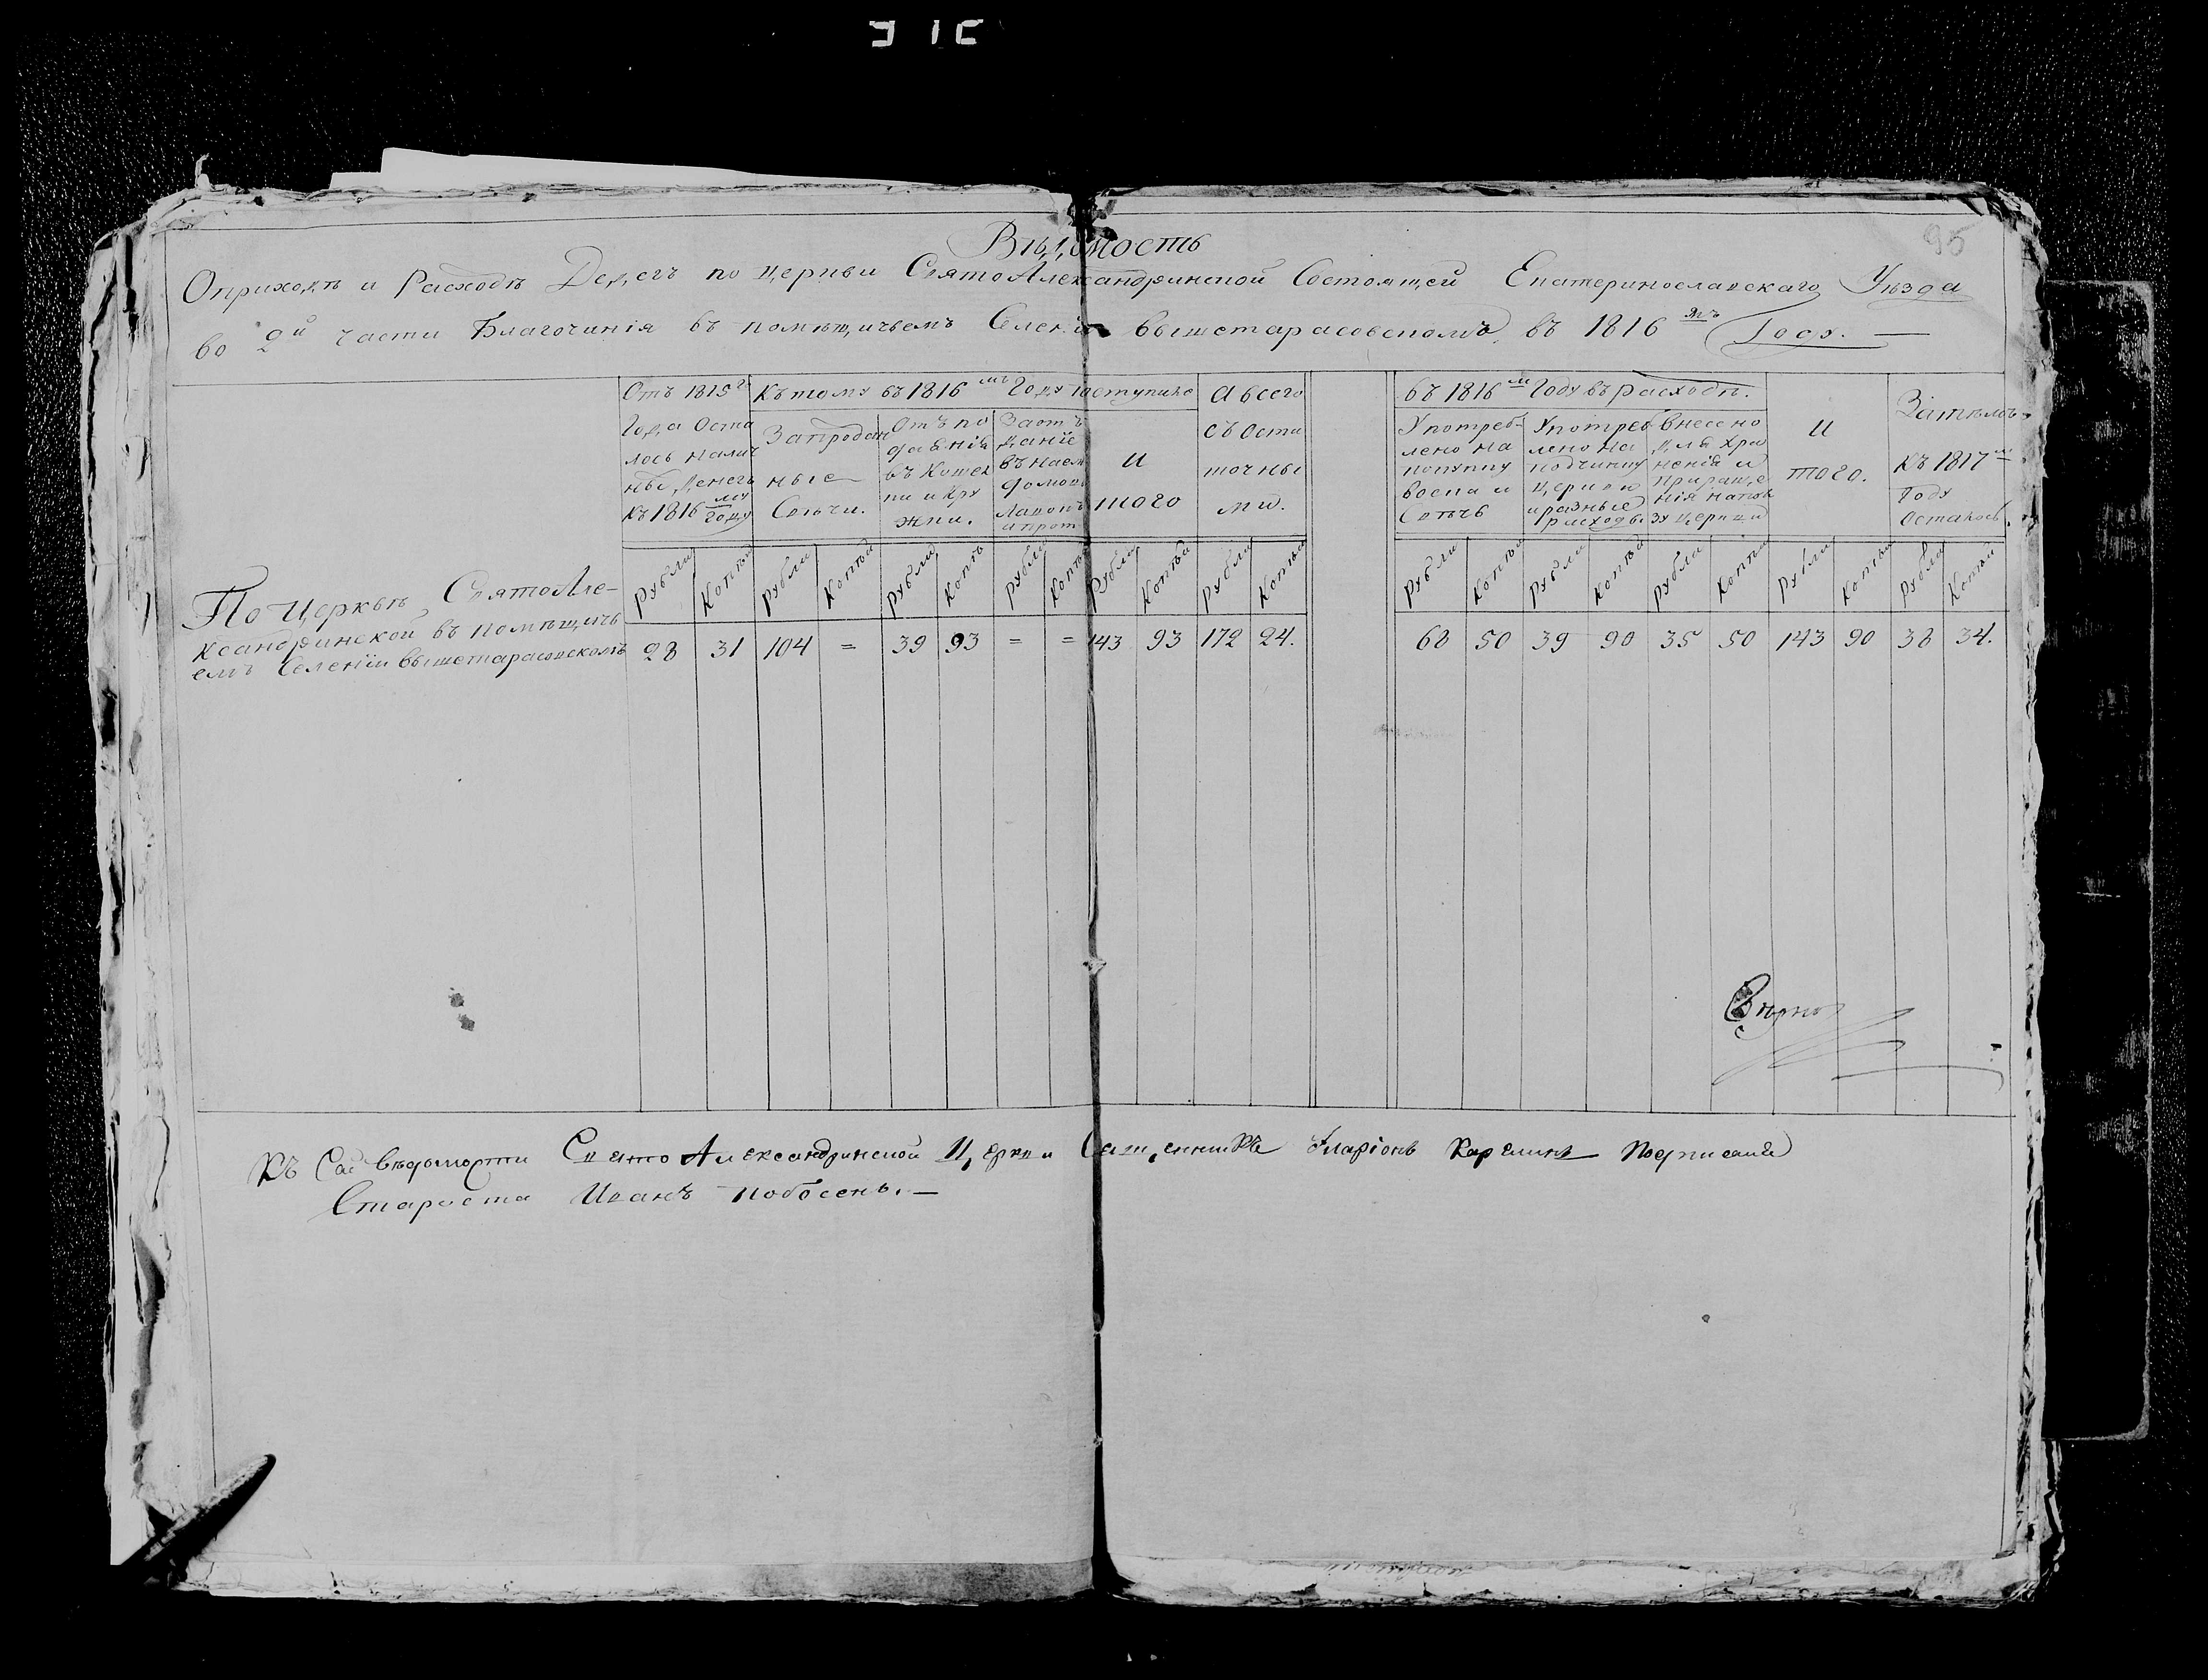 95
Вѣдомость
Оприходѣ и Расходѣ Денегъ по церкви СвятоАлександринской Состоящей Екатеринославскаго Уѣзда
во 2й части Благочинія въ помѣщичьемъ Селеніи вышетарасовскомъ, въ 1816мъ Году.
Отъ 1815г
Года Оста
лось налич
ныхъ денегъ
къ 1816му году
Къ тому въ 1816мъ Году поступило
За продан
ные
Свѣчи.
Отъ по
даянія
въ Кошел
ки и Кру
жки.
въ наем
домовъ
Лавокъ
и
того
А всего
съ Оста
точны
ми.
въ 1816м Году въ расходѣ.
Употреб
лено на
покупку
воска и
Свѣчь
Употреб
лено на
починку
церкви
и разные
расходы
Внесено
для хра
ненія и
приращ,е
нія на
зу церкви
и
того.
Затѣмъ
къ 1817м
Году
Осталось.
Рубли Копѣй Рубли Копѣй Рубли Копѣ Рубли Копѣ Рубли Копѣй Рубли Копѣй Рубли Копѣй Рубли Копѣй Рубли Копѣй Рубли Копѣй Рубли Копѣй
По Церквѣ, СвятоАле-
ксандринской въ помѣщичь
емъ Селеніи вышетарасовскомъ
28 31 104 = 39 93 = = 143 93 172 24. 68 50 39 90 35 50 143 90 38 34.
Вѣрно
Къ Сей вѣдомости Свято Александринской Церкви Священникъ Иларіонъ Карелинъ Подписался
Староста Иванъ